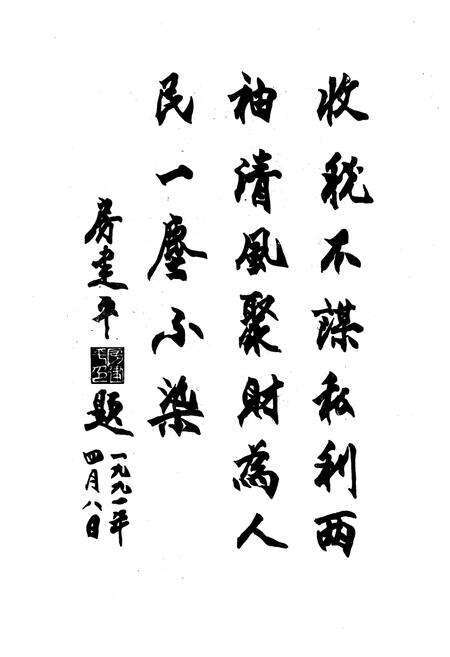 收税不謀私利两
袖清風聚財為人
民一塵不染
房建平題
一九九一年
四月八日